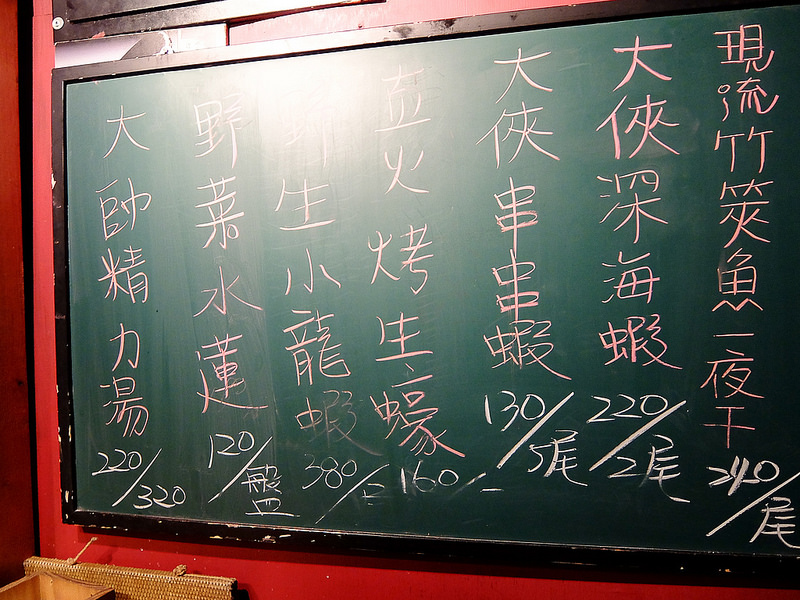 現流竹筴魚一夜干 240/尾
大俠深海蝦 220/2尾
大俠串串蝦 130/5尾
火烤生蠔 160/
野生小龍蝦 380/
野菜水蓮 120/盤
大帥精力湯 220/320